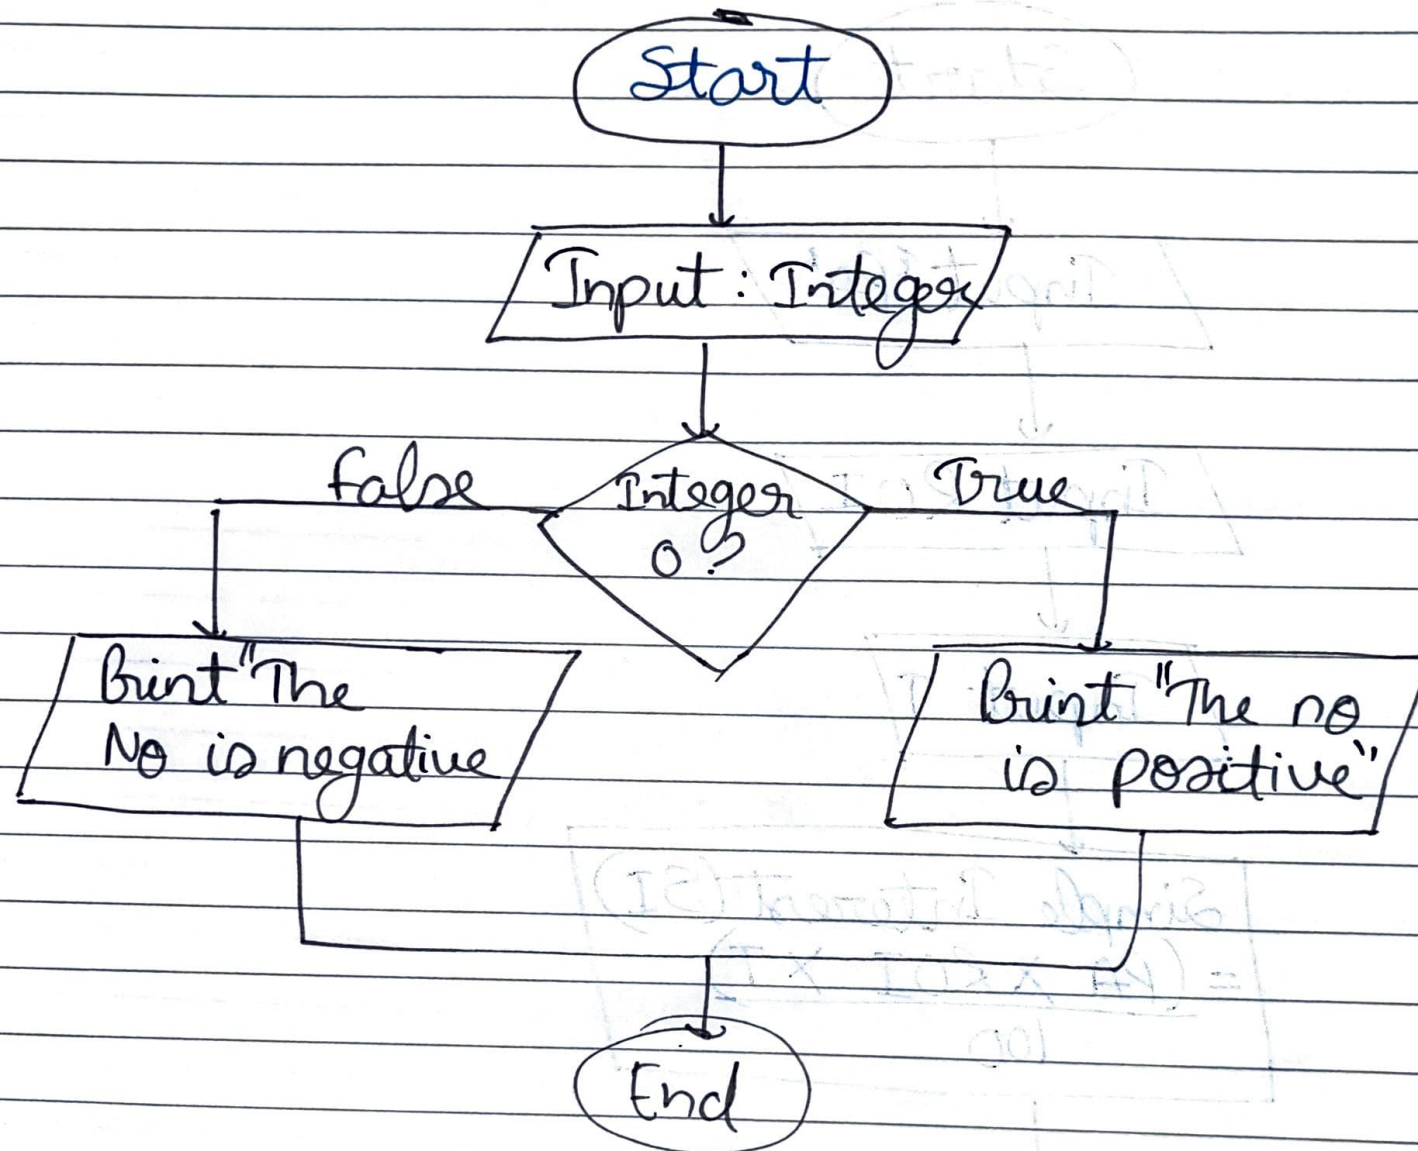 Start
Input : Integer
False
Integer
0 ?
True
Print "The
No is negative
Print "The no
is positive"
End
Simple Interest (SI)
100